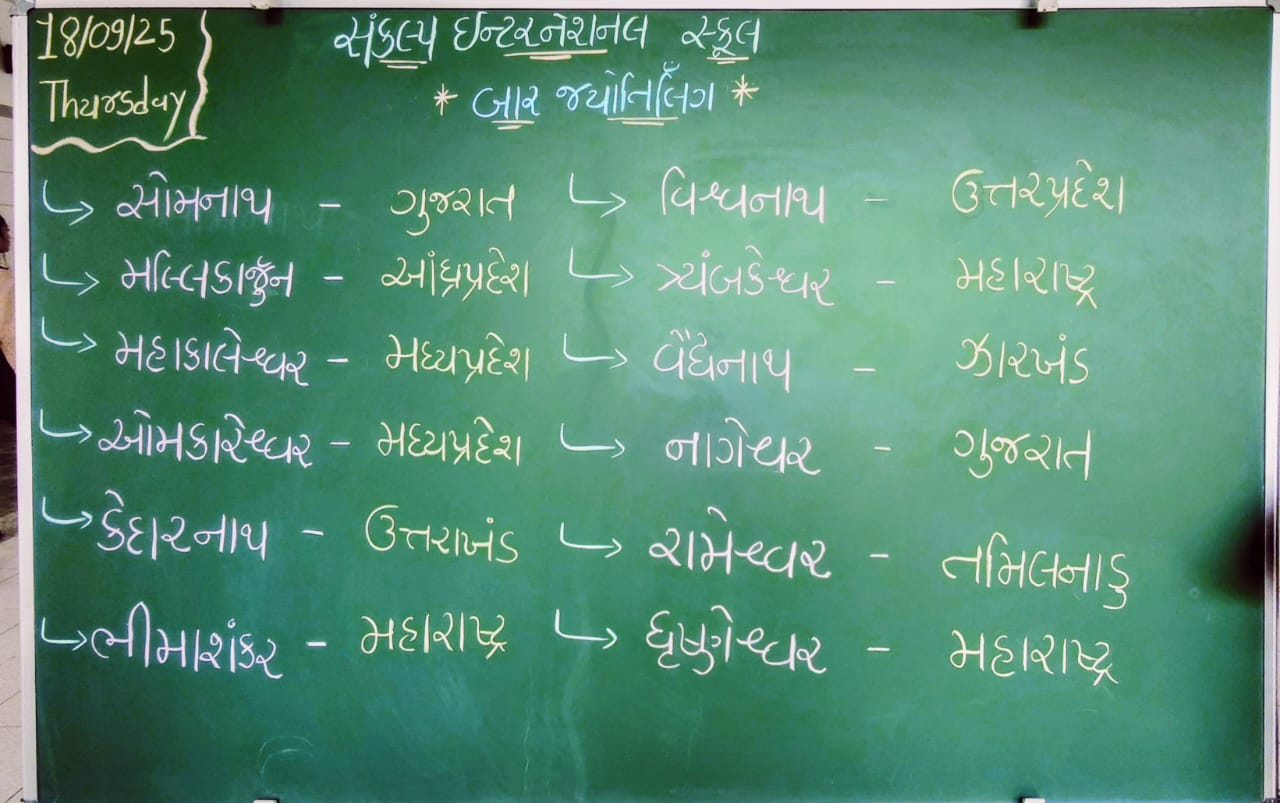 18/09/25
Thursday
સંકલ્પ ઈન્ટરનેશનલ સ્કૂલ
* બાર જ્યોતિર્લિંગ *
↳ સોમનાથ - ગુજરાત
↳ મલ્લિકાર્જુન - આંધ્રપ્રદેશ
↳ મહાકાલેશ્વર - મધ્યપ્રદેશ
↳ ઓમકારેશ્વર - મધ્યપ્રદેશ
↳ કેદારનાથ - ઉત્તરાખંડ
↳ ભીમાશંકર - મહારાષ્ટ્ર
↳ વિશ્વનાથ - ઉત્તરપ્રદેશ
↳ ત્ર્યંબકેશ્વર - મહારાષ્ટ્ર
↳ વૈધેનાથ - ઝારખંડ
↳ નાગેશ્વર - ગુજરાત
↳ રામેશ્વર - તમિલનાડુ
↳ ઘૃષ્ણેશ્વર - મહારાષ્ટ્ર